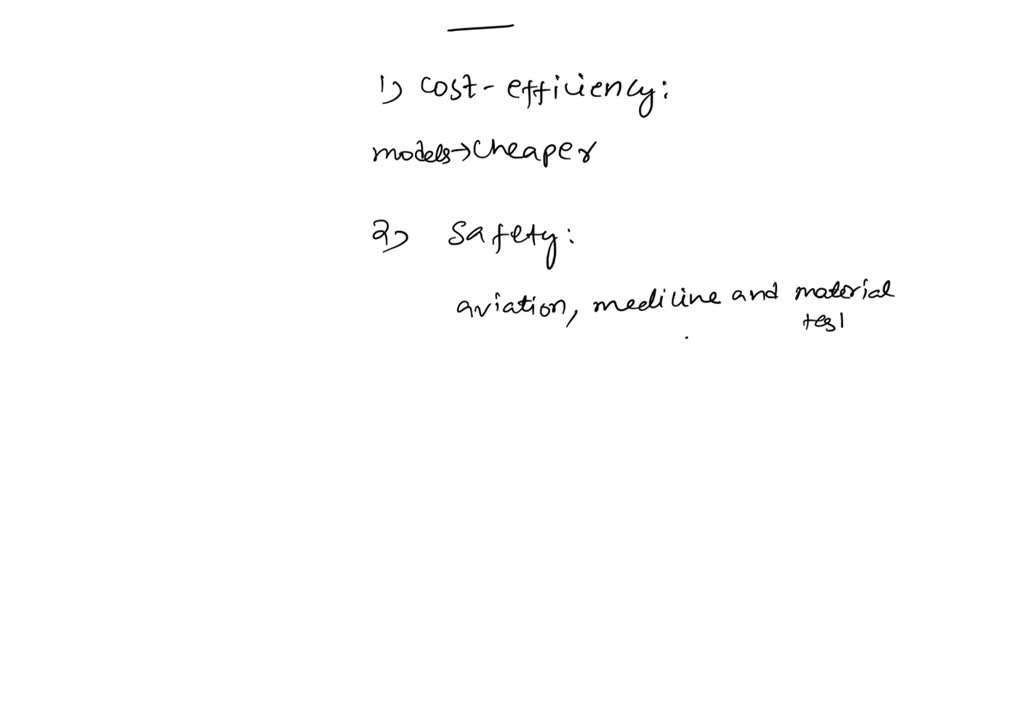 1) cost-efficiency:
models→cheaper
2) Safety:
aviation, medicine and material
test